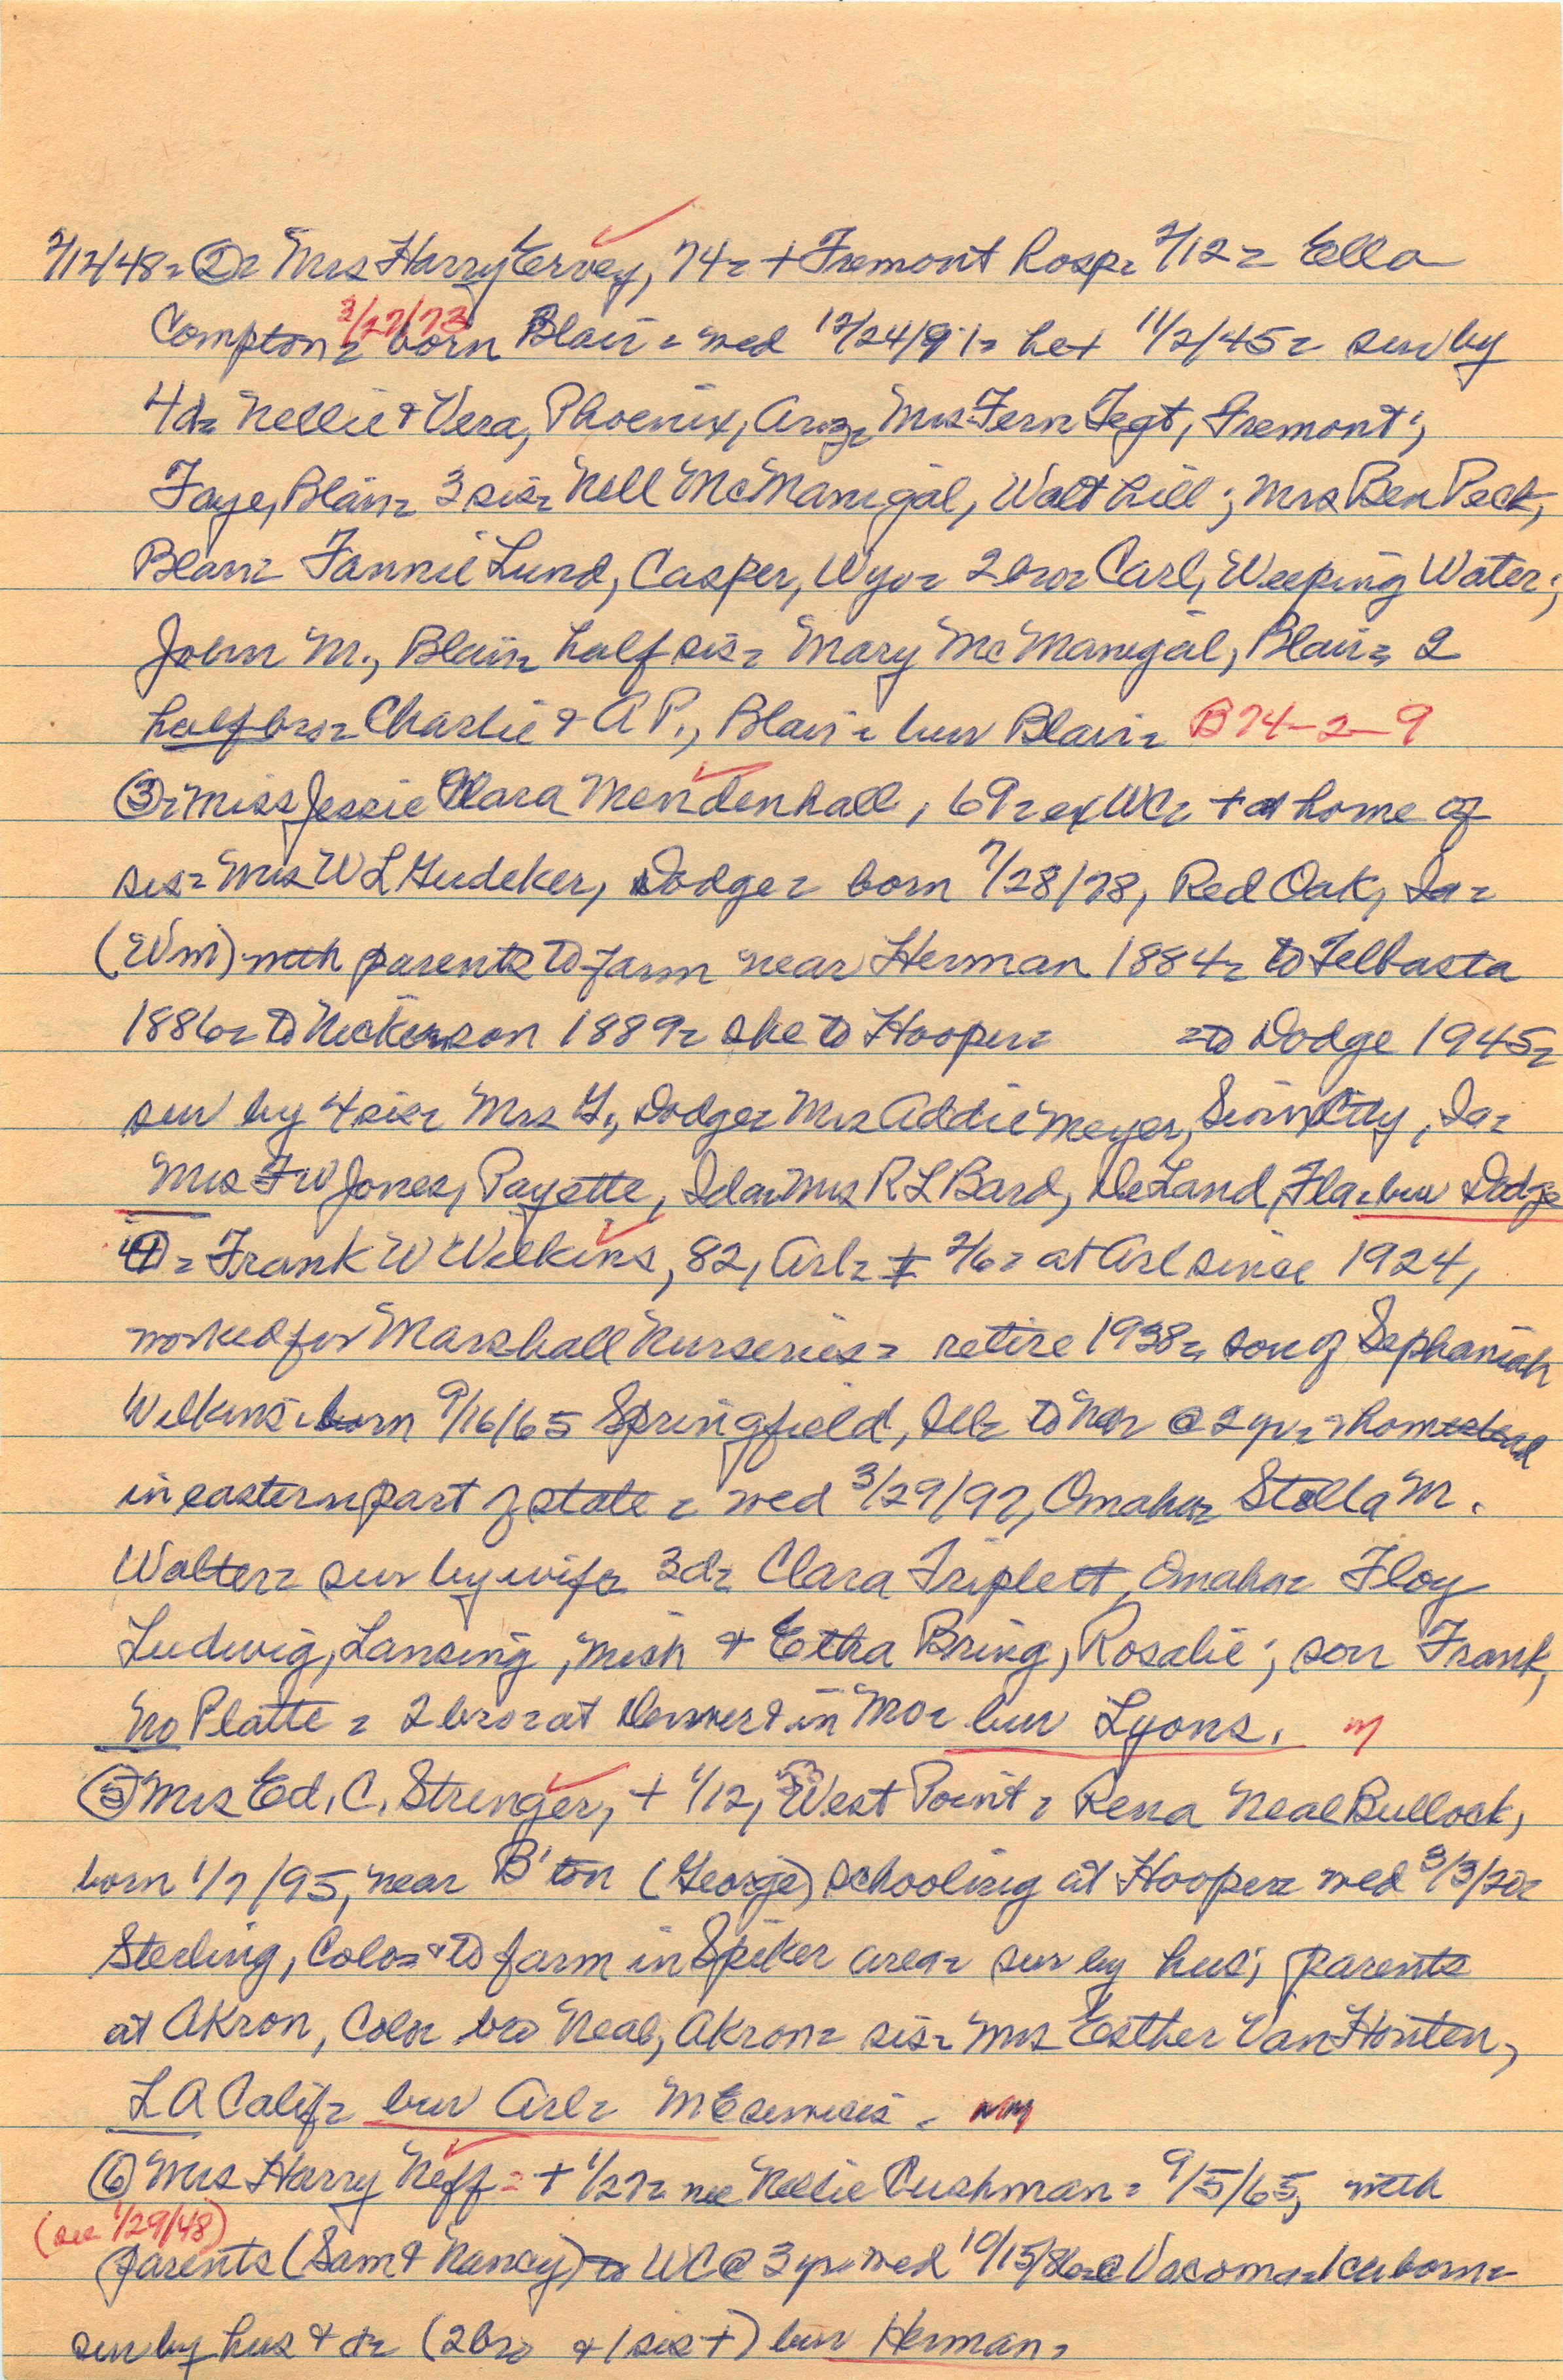 2/12/48= ②= Mrs Harry Ervey, 74= + Fremont hosp= 2/12= Ella
Compton= 3/27/73 born Blair= wed 12/24/91= he+ 11/2/45= surv by
4d= Nellie & Vera, Phoenix, Ariz= Mrs Fern Tegt, Fremont;
Faye, Blair= 3 sis= Nell McManigal, Walthill; Mrs Ben Peck,
Blair= Fannie Lund, Casper, Wyo= 2 bro= Carl, Weeping Water;
John M., Blair= half sis= Mary McManigal, Blair= 2
half bro= Charlie & A P., Blair= bur Blair= B74-2-9
③= Miss Jessie Clara Mendenhall, 69= ex WC= + at home of
sis= Mrs W L Gudeker, Dodge= born 7/28/78, Red Oak, Ia=
(Wm) with parents to farm near Herman 1884= to Telbasta
1886= to Nickerson 1889= she to Hooper= =to Dodge 1945=
sur by 4 sis= Mrs G., Dodge= Mrs Addie Meyer, Sioux City, Ia=
Mrs F W Jones, Payette, Ida= Mrs R L Bard, DeLand, Fla= bur Dodge
④= Frank W Wilkins, 82, Arl= + 2/6= at Arl since 1924,
worked for Marshall Nurseries= retire 1938= son of Sephaniah
Wilkins= born 9/16/65 Springfield, Ill= to Neb @ 2 yr= homestead
in eastern part of state= wed 3/29/97, Omaha= Stella M.
Walter= sur by wife= 3d= Clara Triplett, Omaha= Floy
Ludwig, Lansing, Mich & Etha Bring, Rosalie; son Frank,
No Platte= 2 bro= at Denver & in Mo= bur Lyons. m
⑤ Mrs Ed. C. Strenger, + 1/12, 53 West Point= Rena Neal Bullock,
born 1/7/95, near B'ton (George) schooling at Hooper= wed 3/3/20=
Sterling, Colo= & to farm in Spiker area= sur by hus; parents
at Akron, Colo= bro Neal, Akron= sis= Mrs Esther Van Houten,
L A Calif= bur Arl= ME services=
⑥ Mrs Harry Neff= + 1/27= nee Nellie Cushman= 9/5/65, with
(see 1/29/48)
parents (Sam & Nancy) to WC @ 3 yr= wed 10/15/86= @ Vacoma= born=
sur by hus & d= (2 bro & 1 sis +) bur Herman=